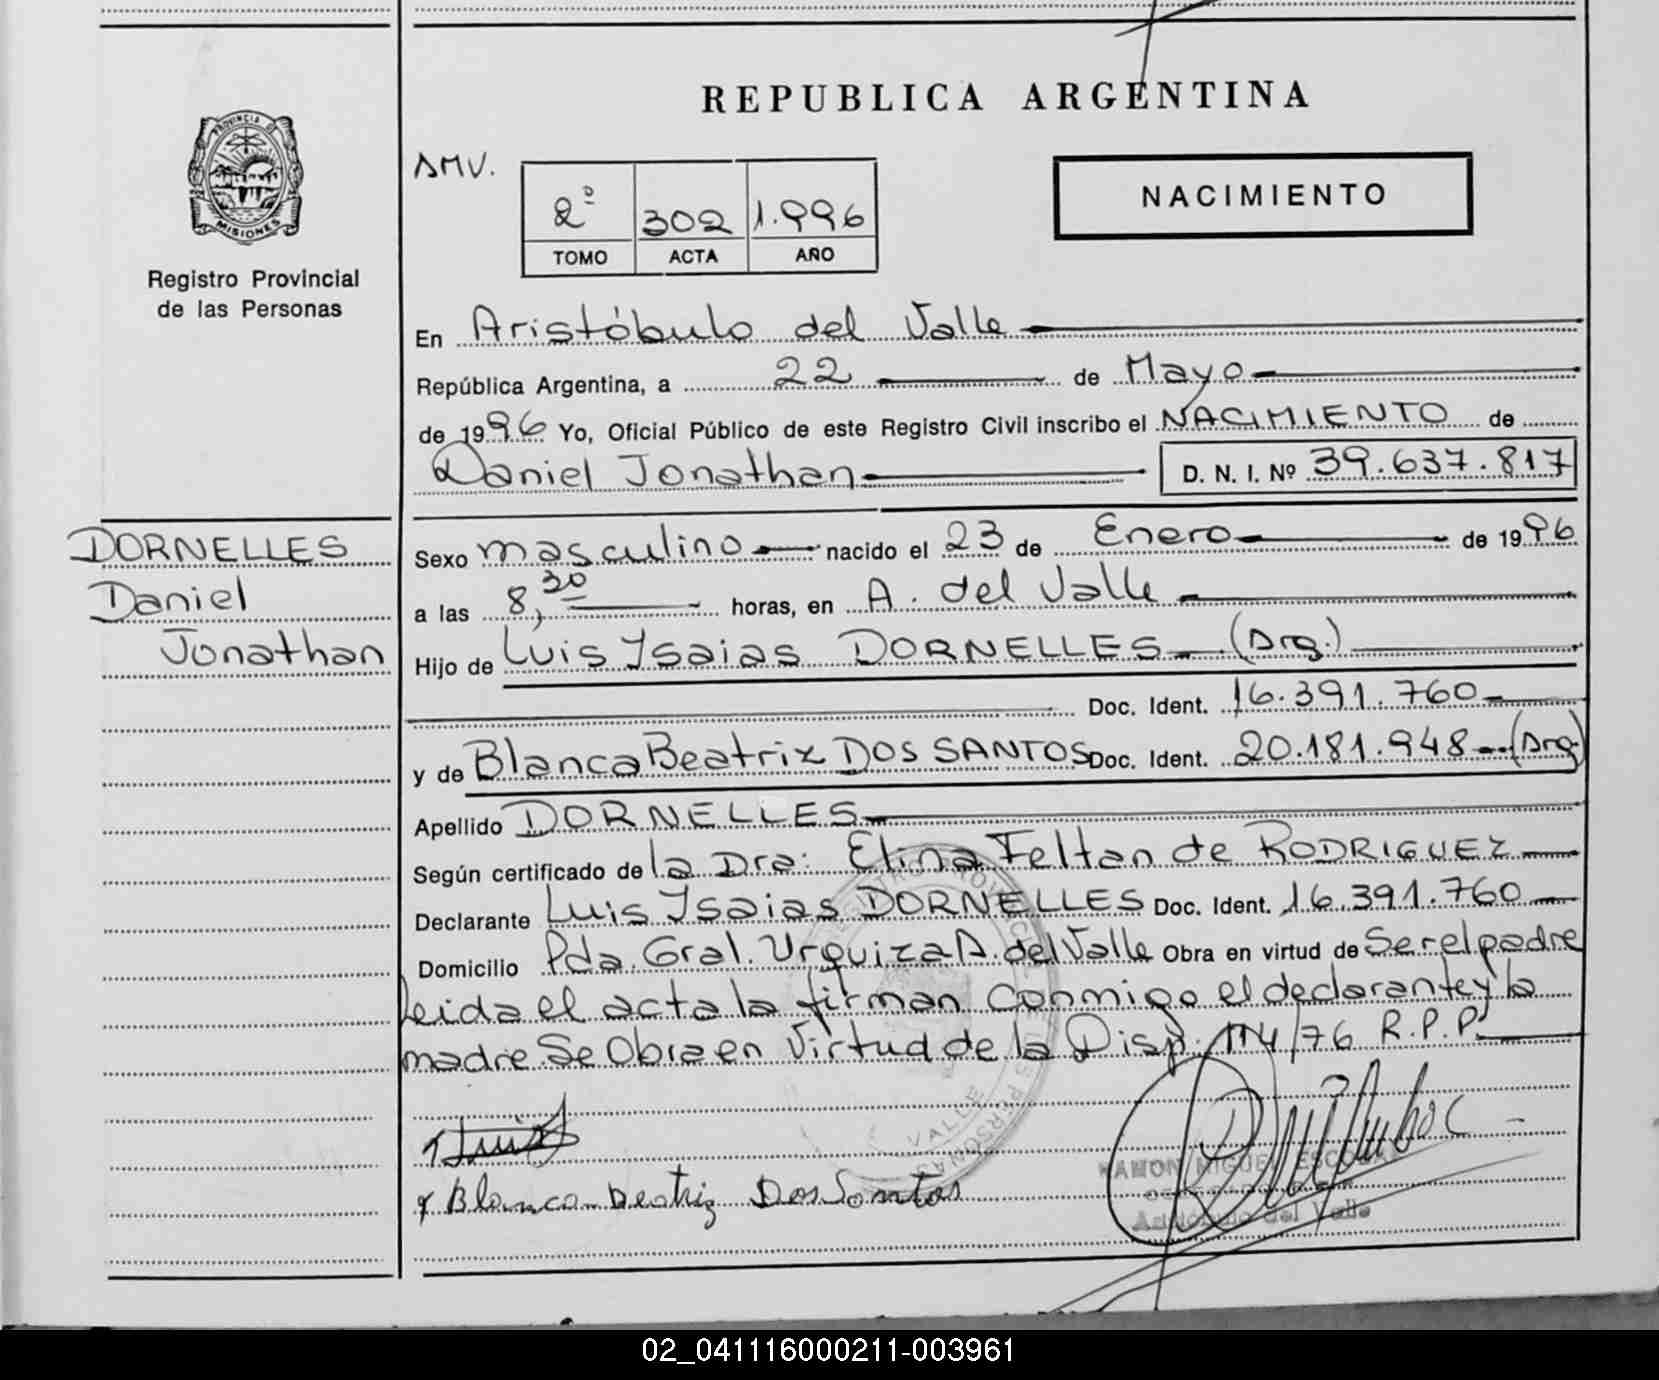 REPUBLICA ARGENTINA
PROVINCIA DE
MISIONES
Registro Provincial
de las Personas
AMV.
2º 302 1.996
TOMO ACTA AÑO
NACIMIENTO
En Aristóbulo del Valle
República Argentina, a 22 de Mayo
de 1996 Yo, Oficial Público de este Registro Civil inscribo el NACIMIENTO de
Daniel Jonathan D. N. I. Nº 39.637.817
DORNELLES
Daniel
Jonathan
Sexo masculino nacido el 23 de Enero de 1996
a las 8,30 horas, en A. del Valle
Hijo de Luis Ysaias DORNELLES (Arg.)
Doc. Ident. 16.391.760
y de Blanca Beatriz DOS SANTOS Doc. Ident. 20.181.948 (Arg.)
Apellido DORNELLES
Según certificado de la Dra: Elina Feltan de RODRIGUEZ
Declarante Luis Ysaias DORNELLES Doc. Ident. 16.391.760
Domicilio Pda. Gral. Urquiza A. del Valle Obra en virtud de Ser el padre
Leida el acta la firman Conmigo el declarante y la
madre. Se Obra en Virtud de la Disp. 114/76 R.P.P.
Luis
Blanca Beatriz Dos Santos
RAMON MIGUEL ESCOBAR
Aristóbulo del Valle
02_041116000211-003961